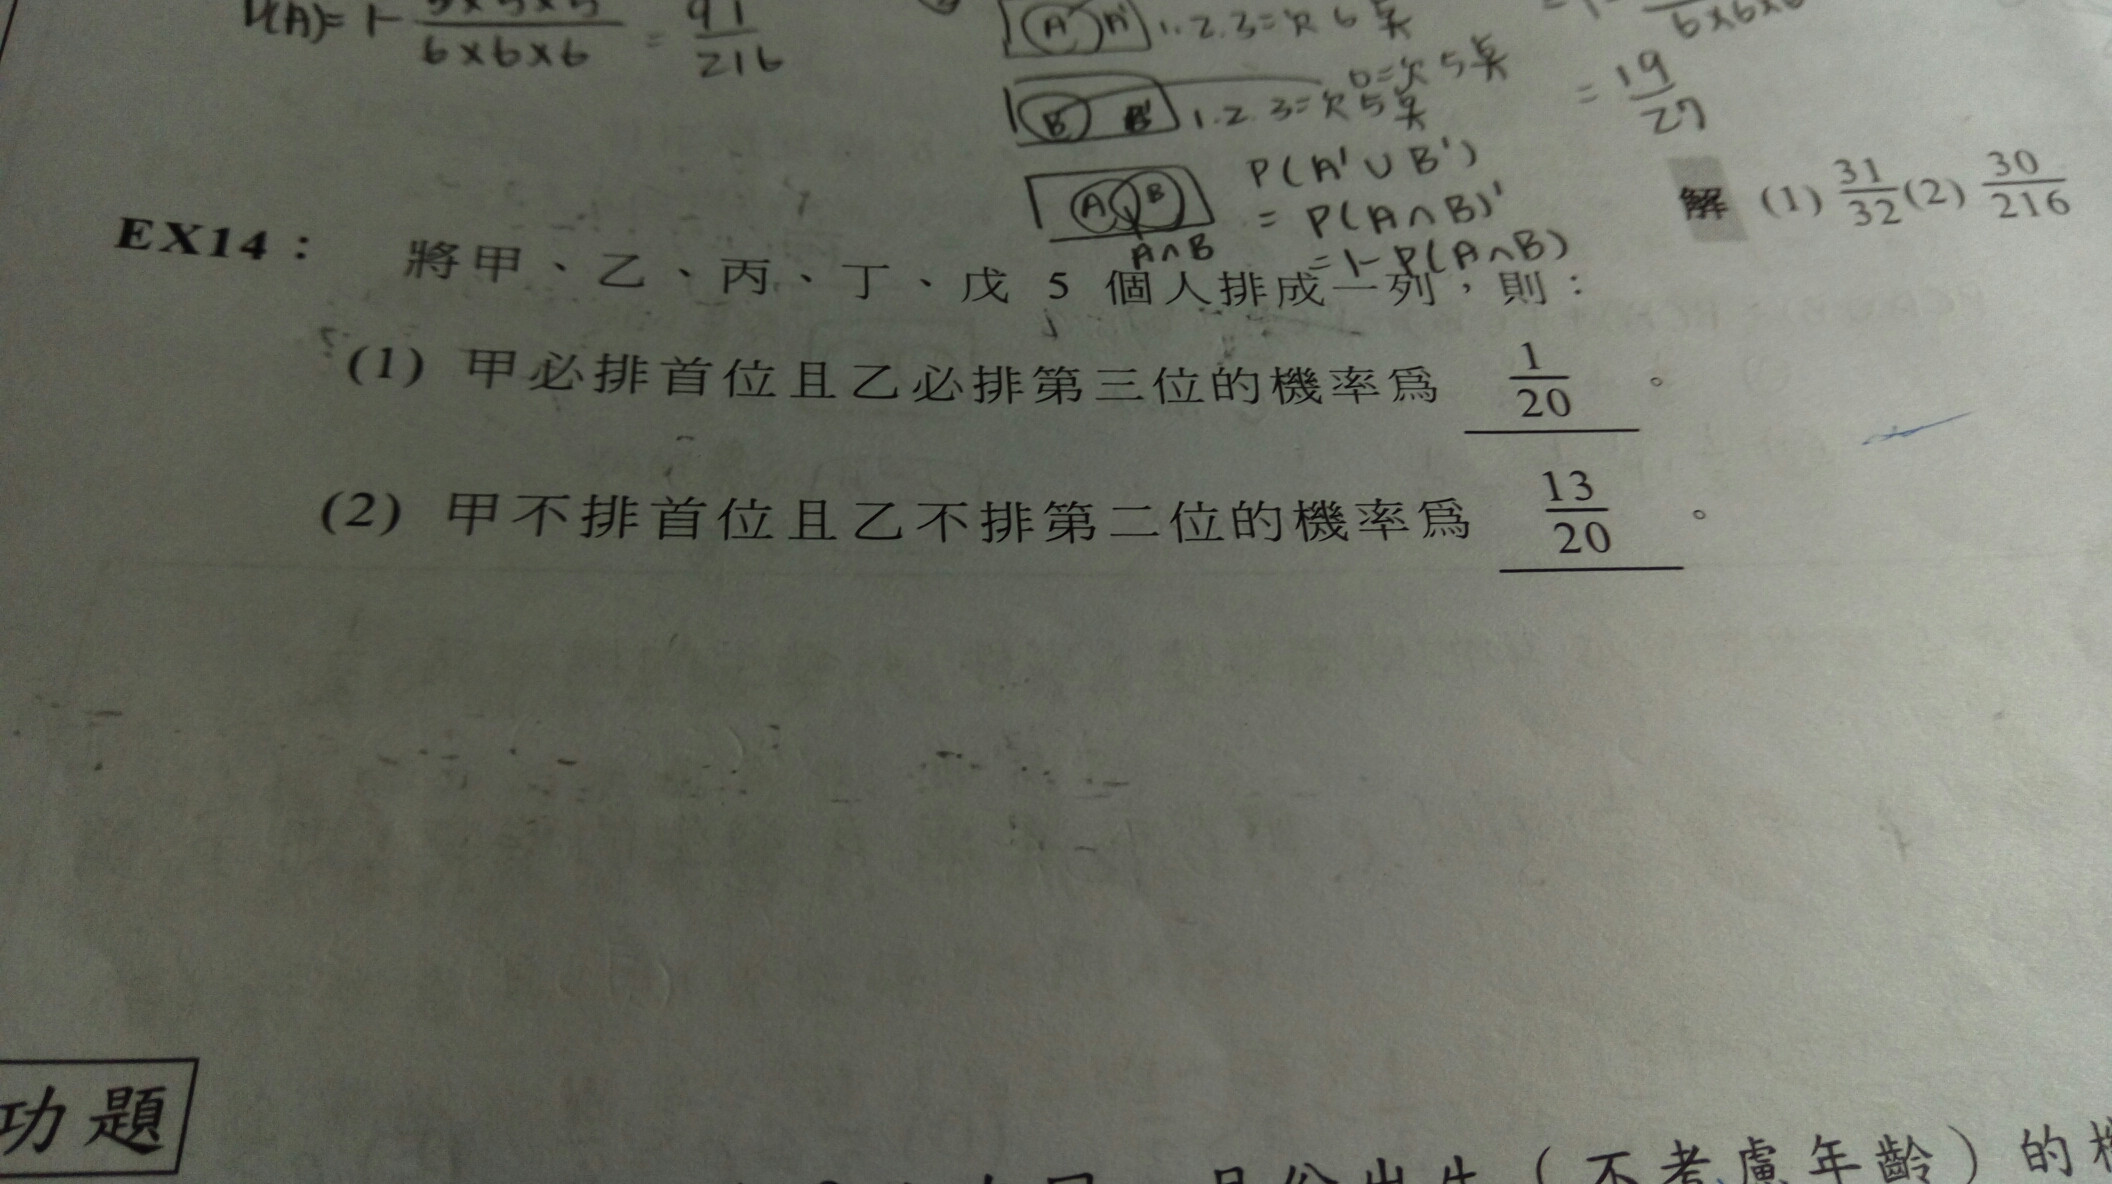 P(A)= 1- 5×5×5 / 6×6×6 = 91/216
A A' 1.2.3=欠6点
6=欠5点
B B' 1.2.3=欠5点
= 19/27
A B P(A'∪B')
A∩B = P(A∩B)'
=1-P(A∩B)
解 (1) 31/32 (2) 30/216
EX14： 將甲、乙、丙、丁、戊 5 個人排成一列，則：
(1) 甲必排首位且乙必排第三位的機率爲 1/20 。
(2) 甲不排首位且乙不排第二位的機率爲 13/20 。
功題
（不考慮年齡）的